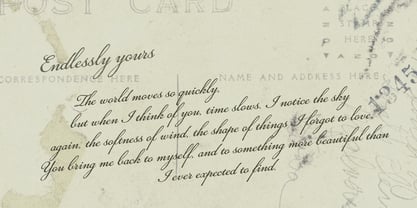 POST CARD
PLACE
STAMP
HERE
Endlessly yours
CORRESPONDENCE HERE
NAME AND ADDRESS HERE
The world moves so quickly,
but when I think of you, time slows. I notice the sky
again, the softness of wind, the shape of things I forgot to love.
You bring me back to myself, and to something more beautiful than
I ever expected to find.
1945